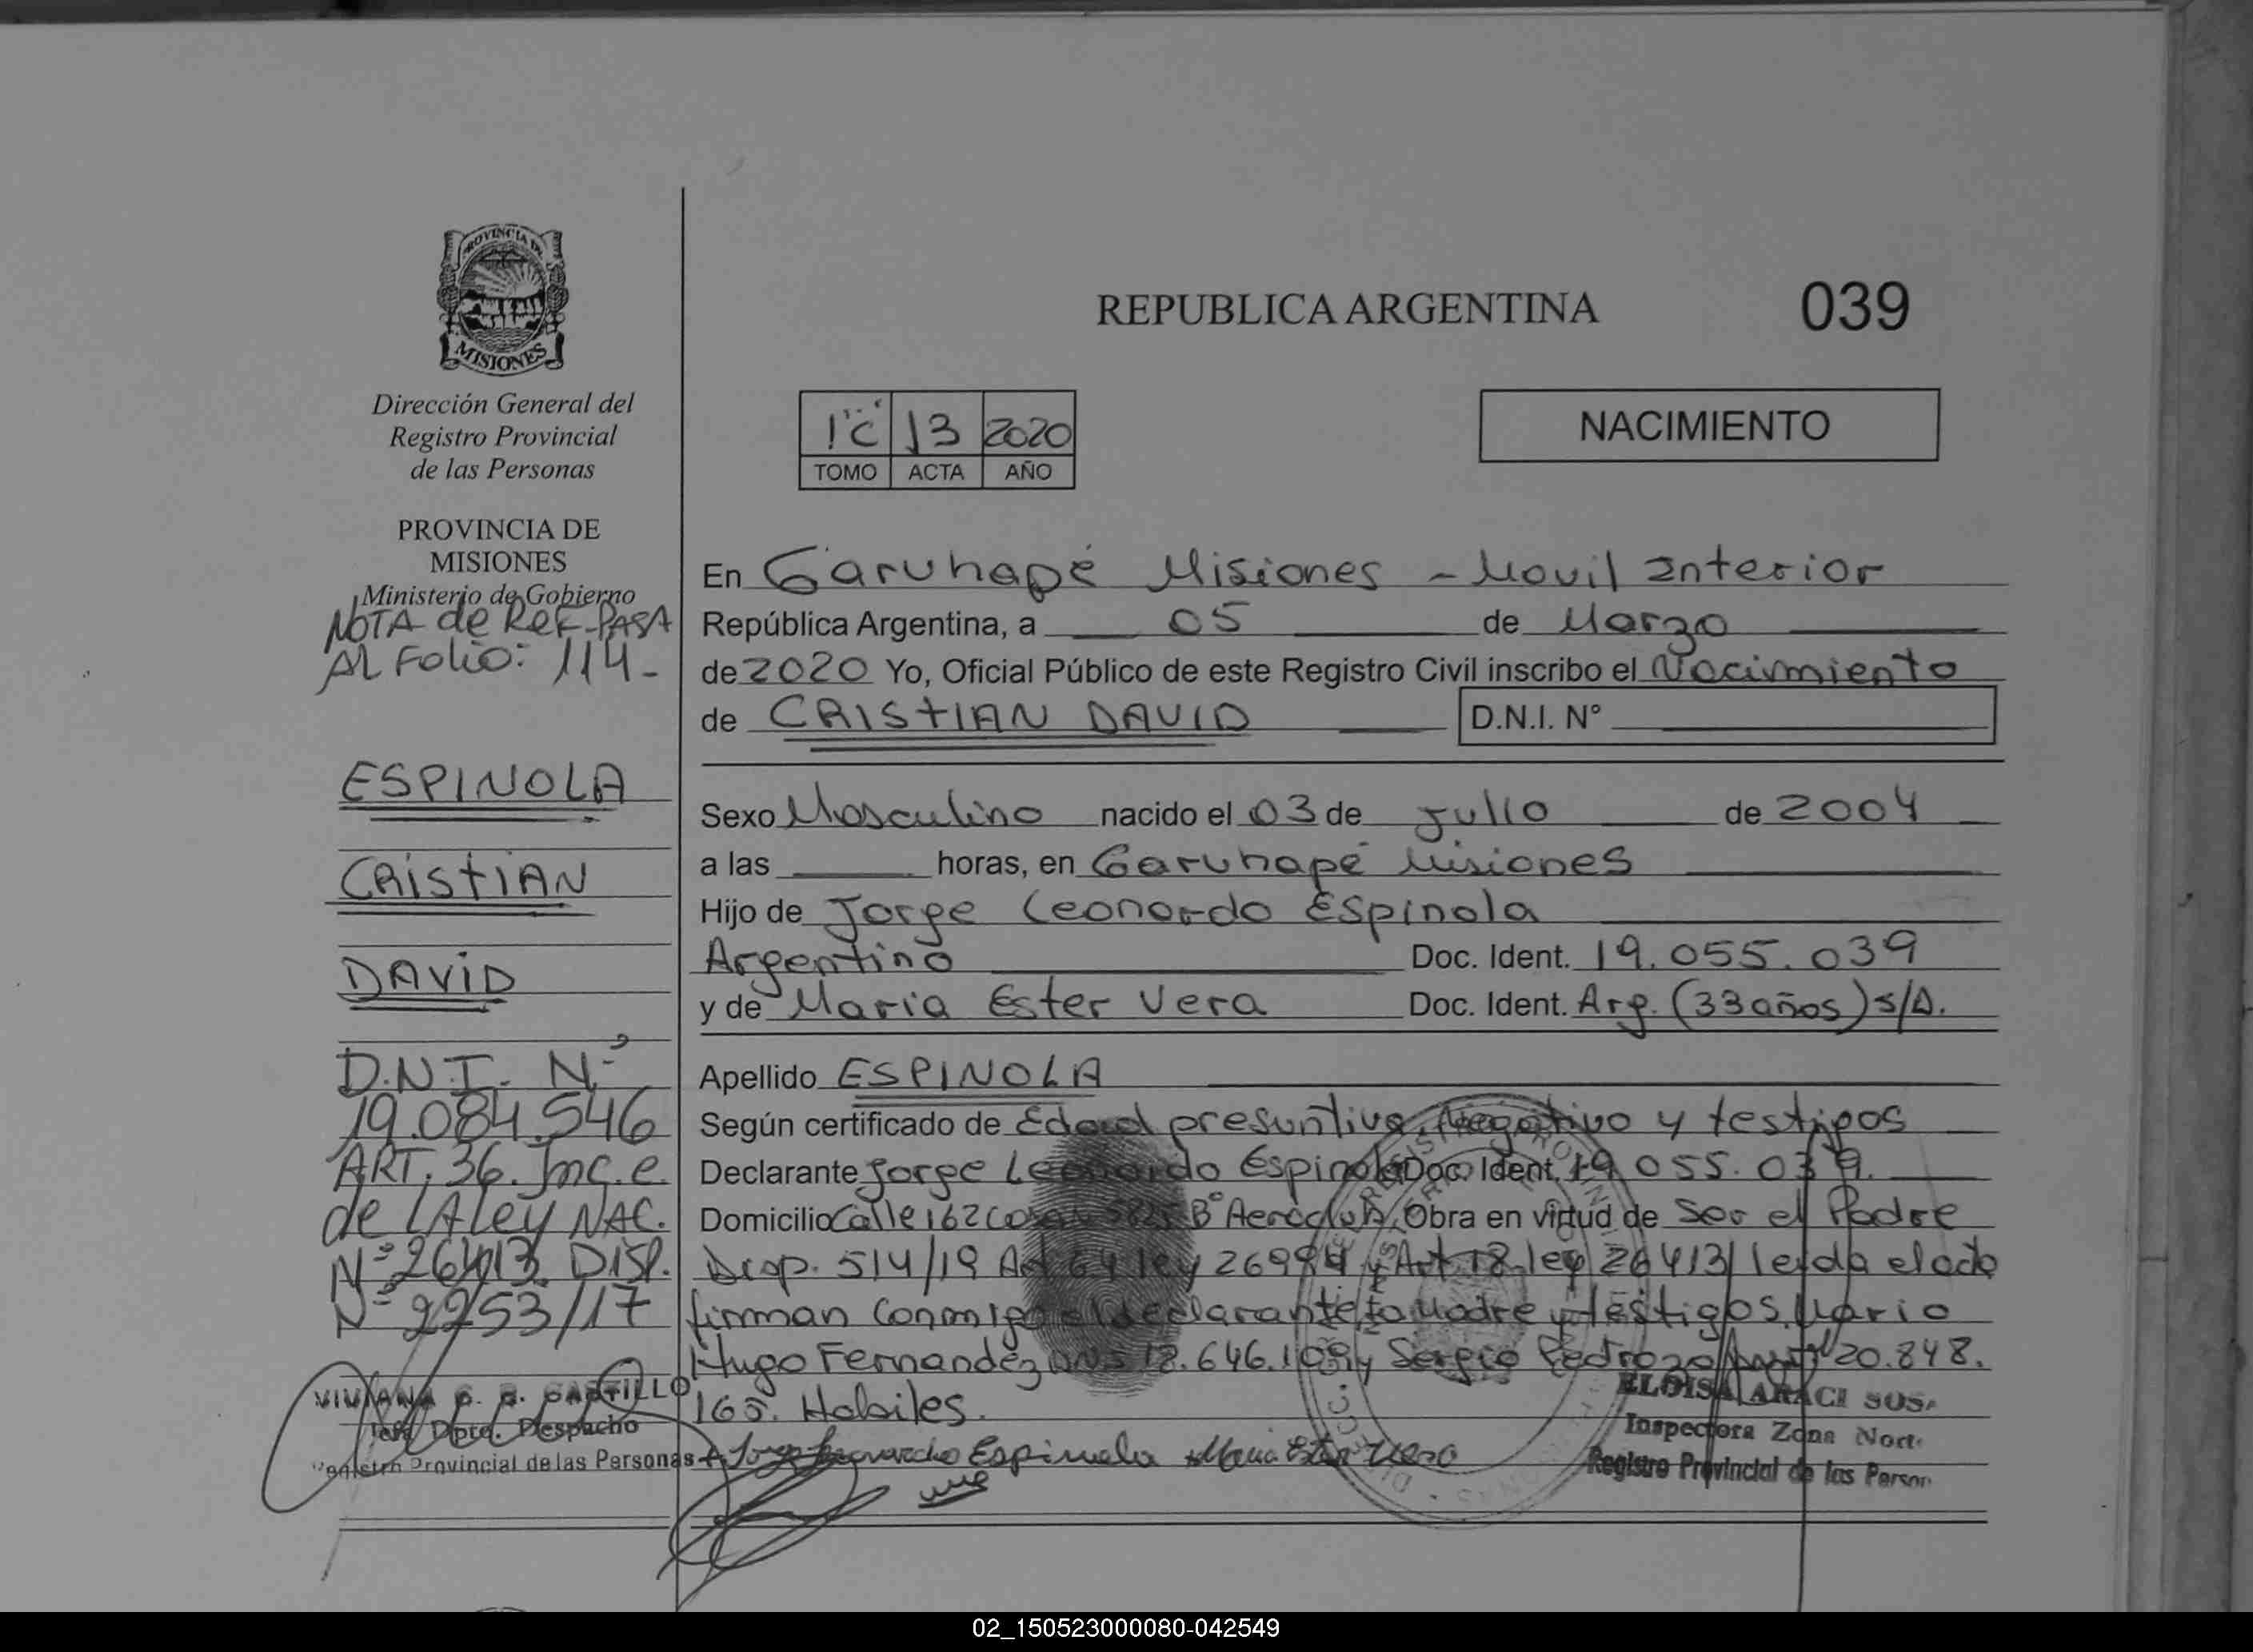 PROVINCIA DE
MISIONES
Dirección General del
Registro Provincial
de las Personas
PROVINCIA DE
MISIONES
Ministerio de Gobierno
NOTA de REF-PASA
AL Folio: 114-
ESPINOLA
CRISTIAN
DAVID
D.N.I. Nº
19.084.546
ART. 36. Inc. e.
de LA Ley NAC.
Nº 26413. DISP.
Nº 2253/17
Jefe Dpto. Despacho
Registro Provincial de las Personas
REPUBLICA ARGENTINA
039
13 2020
TOMO ACTA AÑO
NACIMIENTO
En Garuhapé Misiones - Movil Interior
República Argentina, a 05 de Marzo
de 2020 Yo, Oficial Público de este Registro Civil inscribo el Nacimiento
de CRISTIAN DAVID D.N.I. N°
Sexo Masculino nacido el 03 de Julio de 2004
a las horas, en Garuhapé Misiones
Hijo de Jorge Leonardo Espinola
Argentino Doc. Ident. 19.055.039
y de Maria Ester Vera Doc. Ident. Arg. (33 años) S/D.
Apellido ESPINOLA
Según certificado de Edad presuntiva, Negativo y testigos
Declarante Jorge Leonardo Espinola Doc. Ident. 19 055. 039.
Domicilio Calle 162 Casa Bº Aeroclub, Obra en virtud de Ser el Padre
Disp. 514/19 Art 64 ley 26994 y Art 18 ley 26413/ leida el acta
firman conmigo el declarante, la Madre y testigos, Mario
Hugo Fernandez DNI 18.646.109 y Sergio Pedrozo 20.848.
165. Habiles.
Jorge Leonardo Espinola Maria Ester Vera
ELOISA ARACI SOSA
Inspectora Zona Nort
Registro Provincial de las Person
02_150523000080-042549